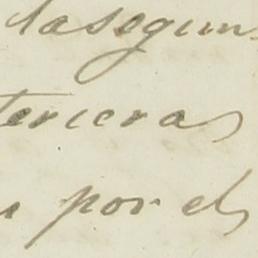 la segun
terceras
por el